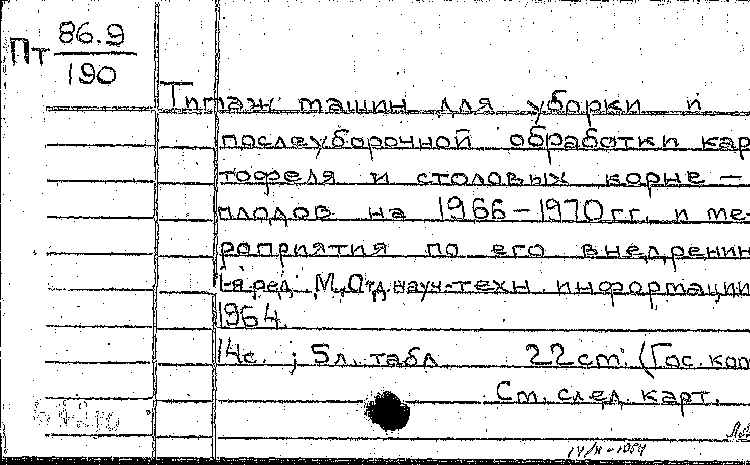 Пт 86.9
190
Типаж машин для уборки и
послеуборочной обработки кар
тофеля и столовых корне –
плодов на 1966–1970 гг. и ме-
роприятия по его внедрению
1-я ред. М., Отд. науч-техн. информации
1964.
14с. ; 5л. табл 22 cm. (Гос. ком
См. след. карт.